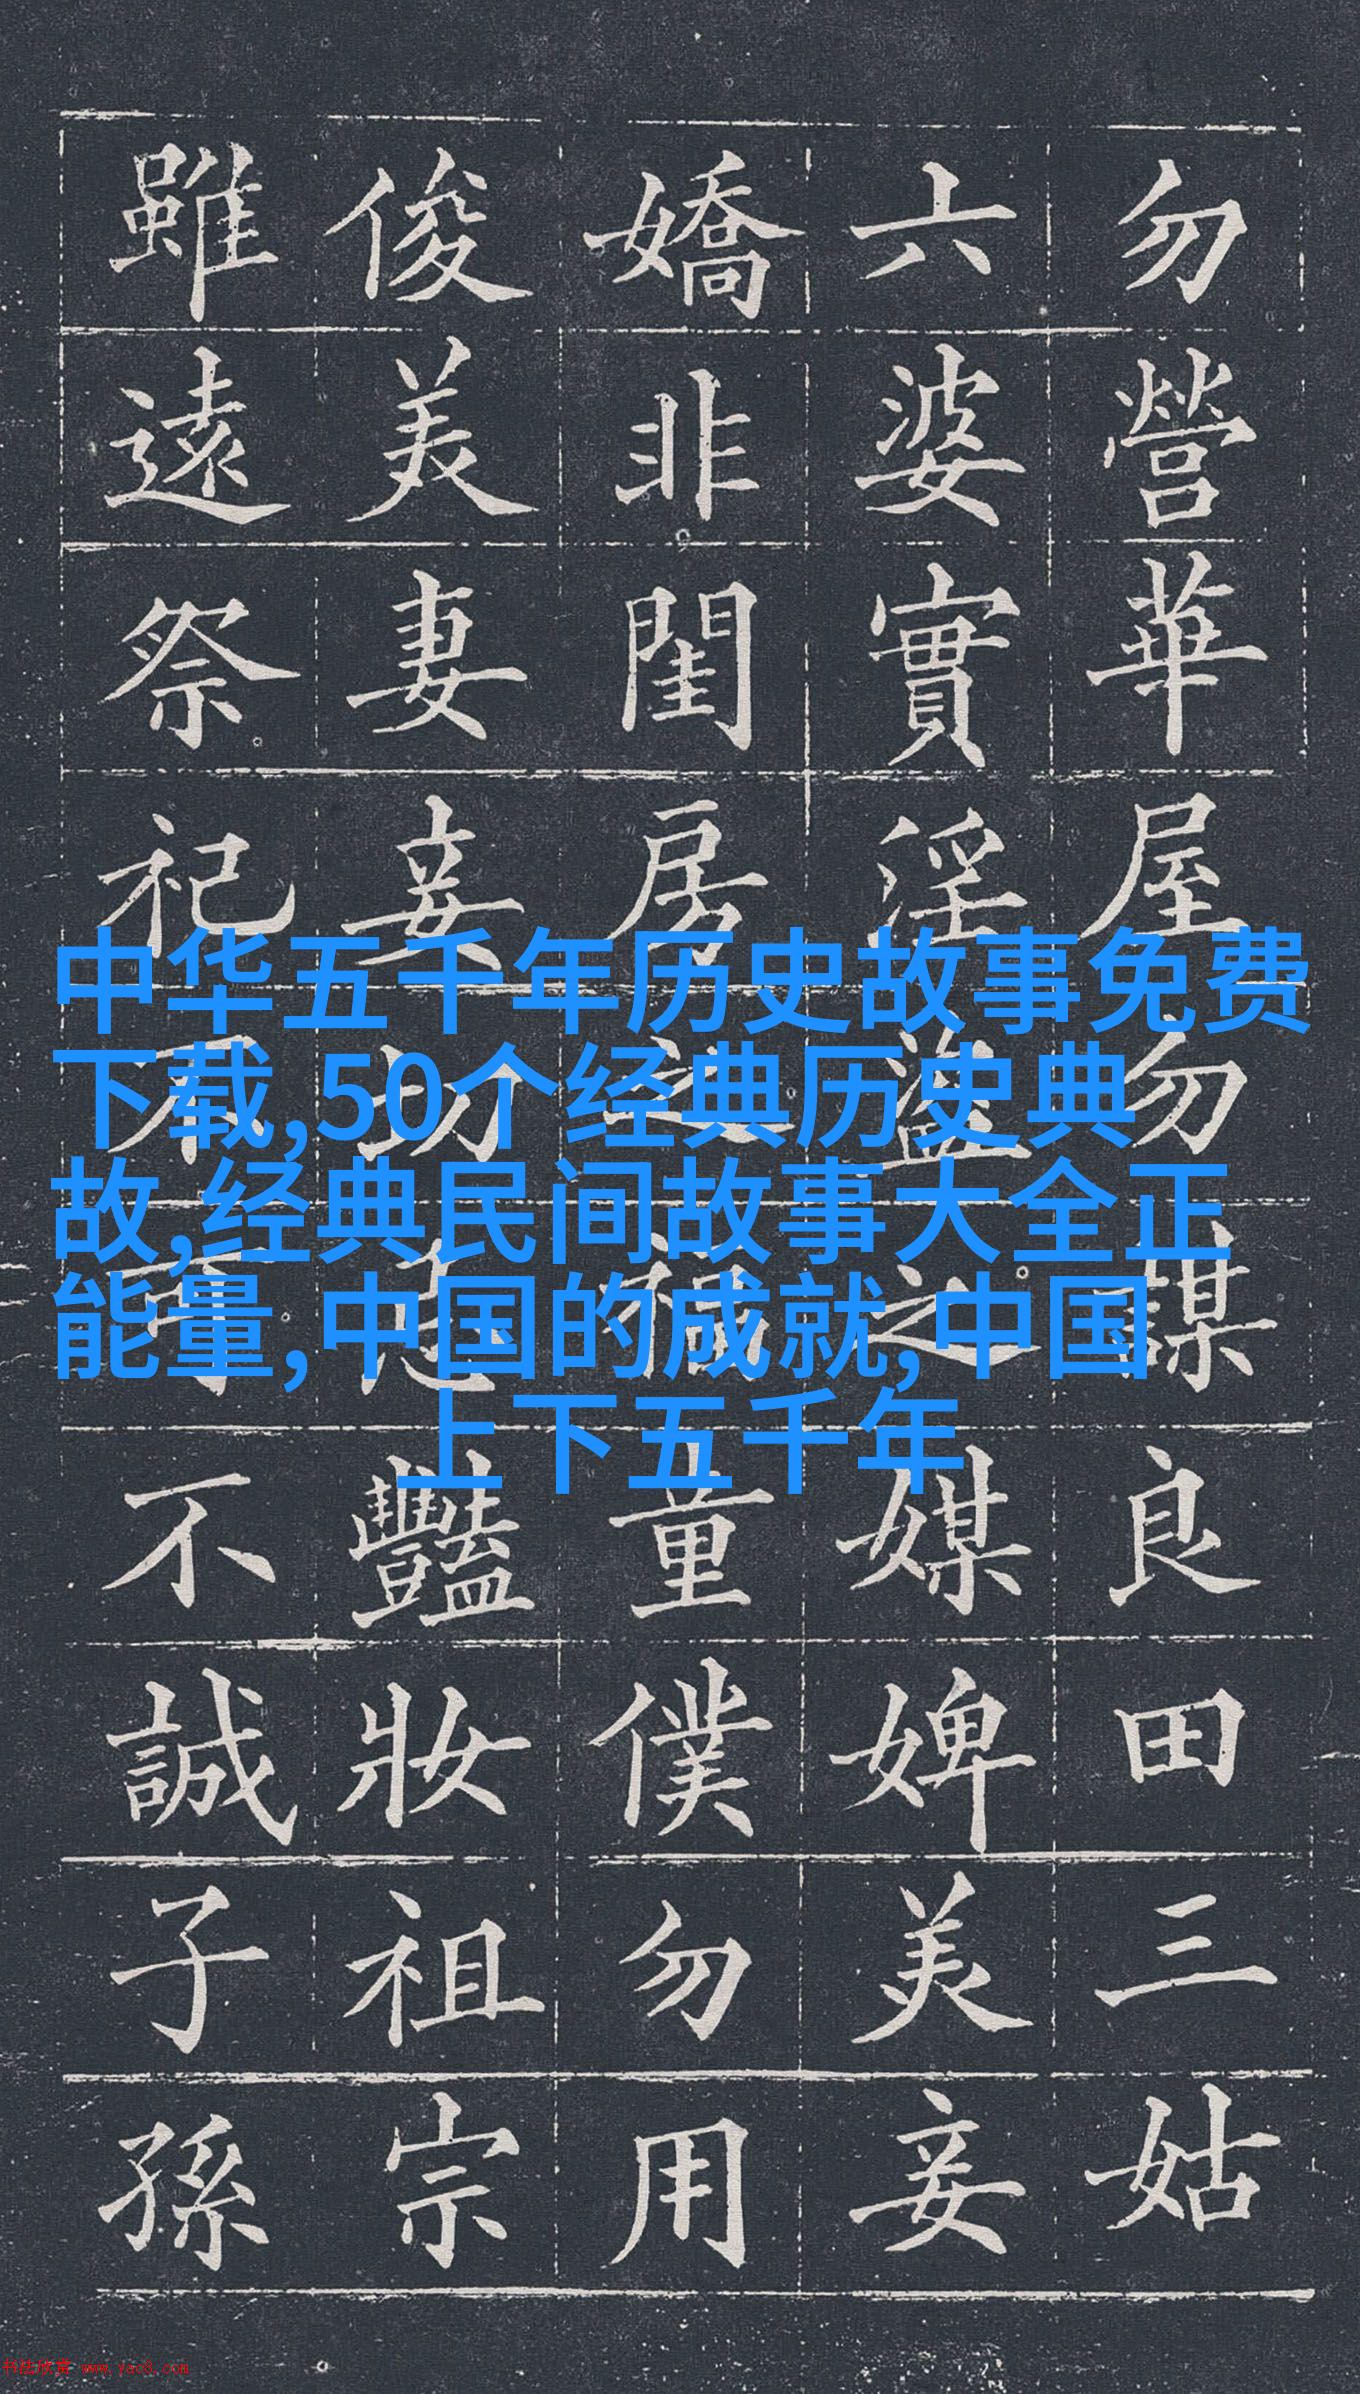 勿營華屋勿謀良田三姑
六婆實淫盜之媒婢美妾
嬌非閨房之福童僕勿用
俊美妻妾切忌豔妝祖宗
雖遠祭祀不可不誠子孫
中华五千年历史故事免费
下载,50个经典历史典
故,经典民间故事大全正
能量,中国的成就,中国
上下五千年
书法欣赏 www.yac8.com